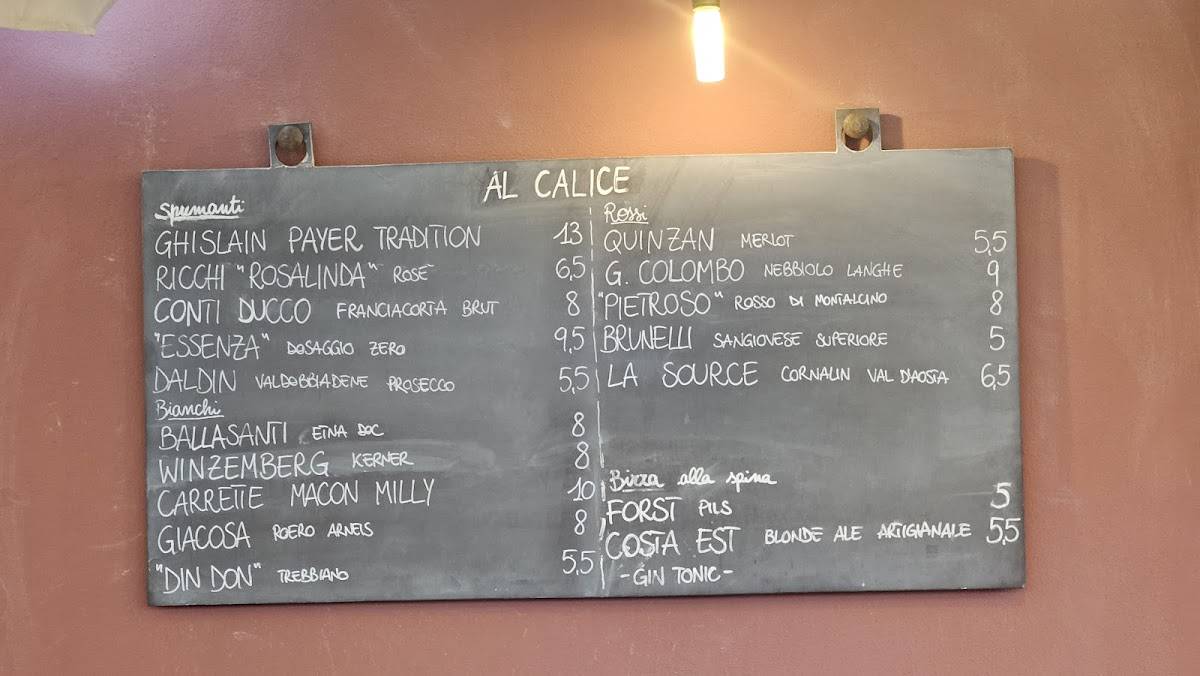 AL CALICE
Spumanti
GHISLAIN PAYER TRADITION 13
RICCHI "ROSALINDA" ROSÈ 6,5
CONTI DUCCO FRANCIACORTA BRUT 8
"ESSENZA" DOSAGGIO ZERO 9,5
DALDIN VALDOBBIADENE PROSECCO 5,5
Bianchi
BALLASANTI ETNA DOC 8
WINZEMBERG KERNER 8
CARRETTE MACON MILLY 10
GIACOSA ROERO ARNEIS 8
"DIN DON" TREBBIANO 5,5
Rossi
QUINZAN MERLOT 5,5
G. COLOMBO NEBBIOLO LANGHE 9
"PIETROSO" ROSSO DI MONTALCINO 8
BRUNELLI SANGIOVESE SUPERIORE 5
LA SOURCE CORNALIN VAL D'AOSTA 6,5
Birra alla spina
FORST PILS 5
COSTA EST BLONDE ALE ARTIGIANALE 5,5
-GIN TONIC-